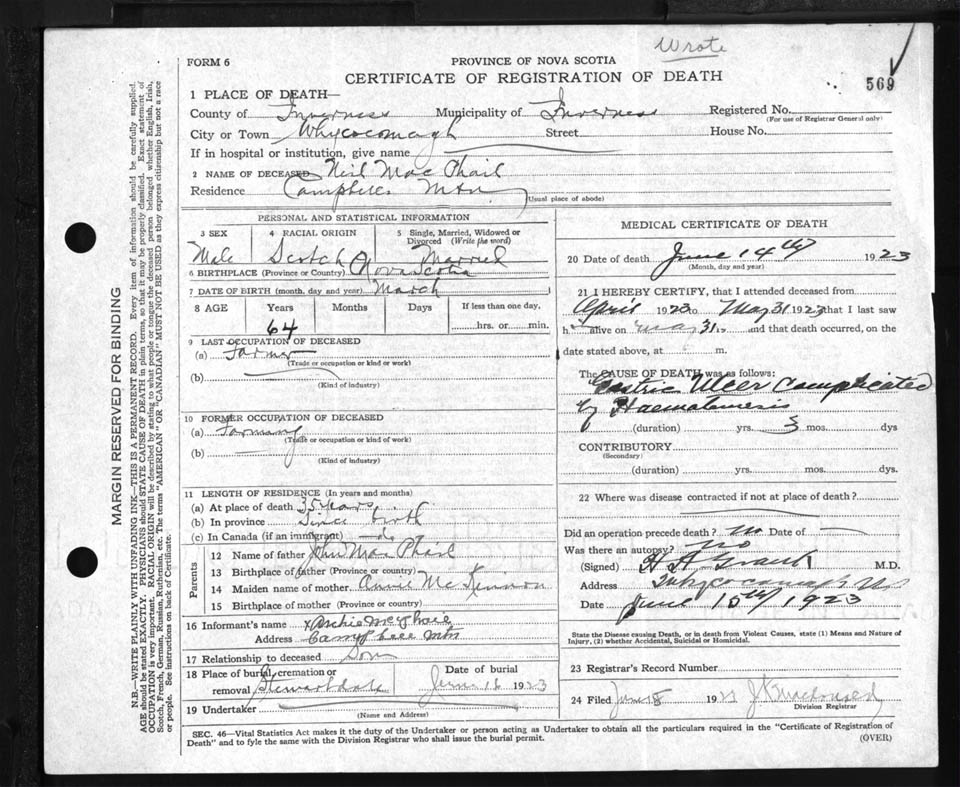 Wrote
569
FORM 6
PROVINCE OF NOVA SCOTIA
CERTIFICATE OF REGISTRATION OF DEATH
1 PLACE OF DEATH—
County of Inverness Municipality of Inverness Registered No.
(For use of Registrar General only)
City or Town Whycocomagh Street House No.
If in hospital or institution, give name
2 NAME OF DECEASED Neil MacPhail
Residence Campbells Mtn
(Usual place of abode)
PERSONAL AND STATISTICAL INFORMATION
3 SEX 4 RACIAL ORIGIN 5 Single, Married, Widowed or Divorced (Write the word)
Male Scotch Married
6 BIRTHPLACE (Province or Country) Nova Scotia
7 DATE OF BIRTH (month, day and year) March
8 AGE Years Months Days If less than one day,
64 hrs. or min.
9 LAST OCCUPATION OF DECEASED
(a) Farmer
(Trade or occupation or kind or work)
(b)
(Kind of industry)
10 FORMER OCCUPATION OF DECEASED
(a) Farming
(Trade or occupation or kind or work)
(b)
(Kind of industry)
11 LENGTH OF RESIDENCE (In years and months)
(a) At place of death 35 Years
(b) In province Since birth
(c) In Canada (if an immigrant)
Parents
12 Name of father John MacPhail
13 Birthplace of father (Province or country)
14 Maiden name of mother Annie McKennon
15 Birthplace of mother (Province or country)
16 Informant's name x Archie McPhail
Address Campbell Mtn
17 Relationship to deceased Son
18 Place of burial, cremation or removal Stewartdale Date of burial June 16 1923
19 Undertaker
(Name and Address)
MEDICAL CERTIFICATE OF DEATH
20 Date of death June 14th 1923
(Month, day and year)
21 I HEREBY CERTIFY, that I attended deceased from
April 1923 to May 31 1923 that I last saw
h alive on May 31 19 and that death occurred, on the
date stated above, at m.
The CAUSE OF DEATH was as follows:
Gastric Ulcer Complicated
by Haematemesis
(duration) yrs. 3 mos. dys
CONTRIBUTORY
(Secondary)
(duration) yrs. mos. dys.
22 Where was disease contracted if not at place of death?
Did an operation precede death? No Date of
Was there an autopsy? No
(Signed) H A Grant M.D.
Address Whycocomagh
Date June 15th 1923
State the Disease causing Death, or in death from Violent Causes, state (1) Means and Nature of
Injury, (2) whether Accidental, Suicidal or Homicidal.
23 Registrar's Record Number
24 Filed June 18 1923 Macdonald
Division Registrar
SEC. 46—Vital Statistics Act makes it the duty of the Undertaker or person acting as Undertaker to obtain all the particulars required in the "Certificate of Registration of
Death" and to fyle the same with the Division Registrar who shall issue the burial permit.
(OVER)
MARGIN RESERVED FOR BINDING
N.B.—WRITE PLAINLY WITH UNFADING INK—THIS IS A PERMANENT RECORD. Every item of information should be carefully supplied.
AGE should be stated EXACTLY. PHYSICIANS should STATE CAUSE OF DEATH in plain terms, so that it may be properly classified. Exact statement of
OCCUPATION is very important. RACIAL ORIGIN will be described by stating to what people or tongue the deceased person belonged whether English, Irish,
Scotch, French, German, Russian, Ruthenian, etc. The terms "AMERICAN" OR "CANADIAN" MUST NOT BE USED as they express citizenship but not a race
or people. See instructions on back of Certificate.